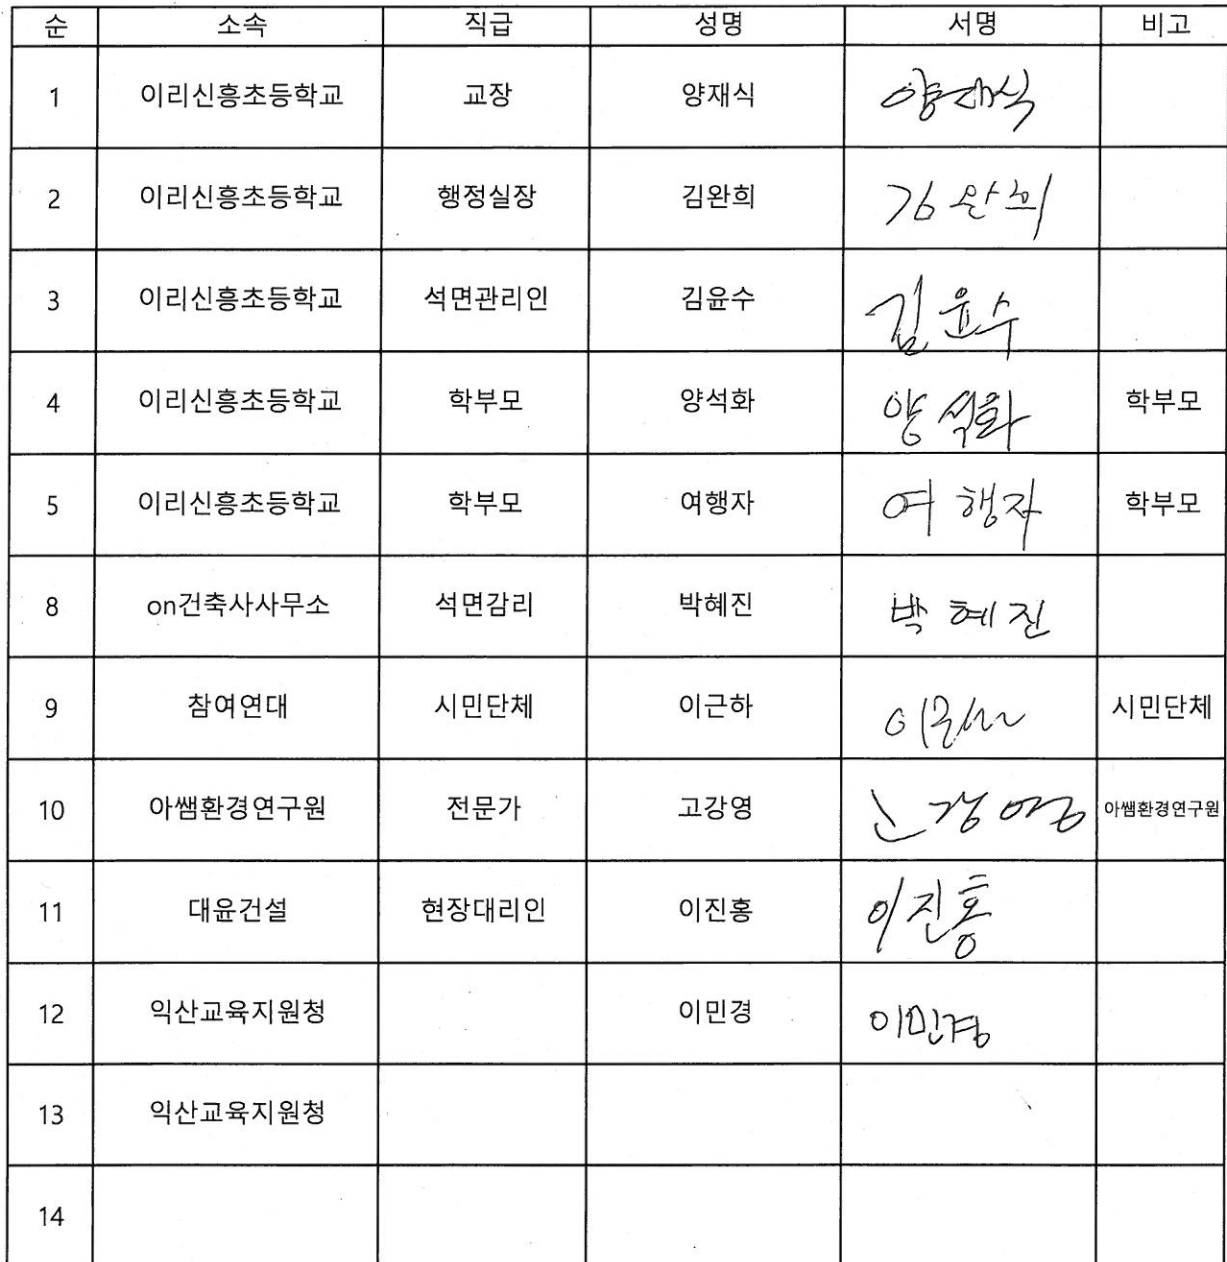 순 소속 직급 성명 서명 비고
1 이리신흥초등학교 교장 양재식 양재식
2 이리신흥초등학교 행정실장 김완희 김완희
3 이리신흥초등학교 석면관리인 김윤수 김윤수
4 이리신흥초등학교 학부모 양석화 양석화 학부모
5 이리신흥초등학교 학부모 여행자 여행자 학부모
8 on건축사사무소 석면감리 박혜진 박혜진
9 참여연대 시민단체 이근하 시민단체
10 아쌤환경연구원 전문가 고강영 아쌤환경연구원
11 대윤건설 현장대리인 이진홍 이진홍
12 익산교육지원청 이민경 이민경
13 익산교육지원청
14